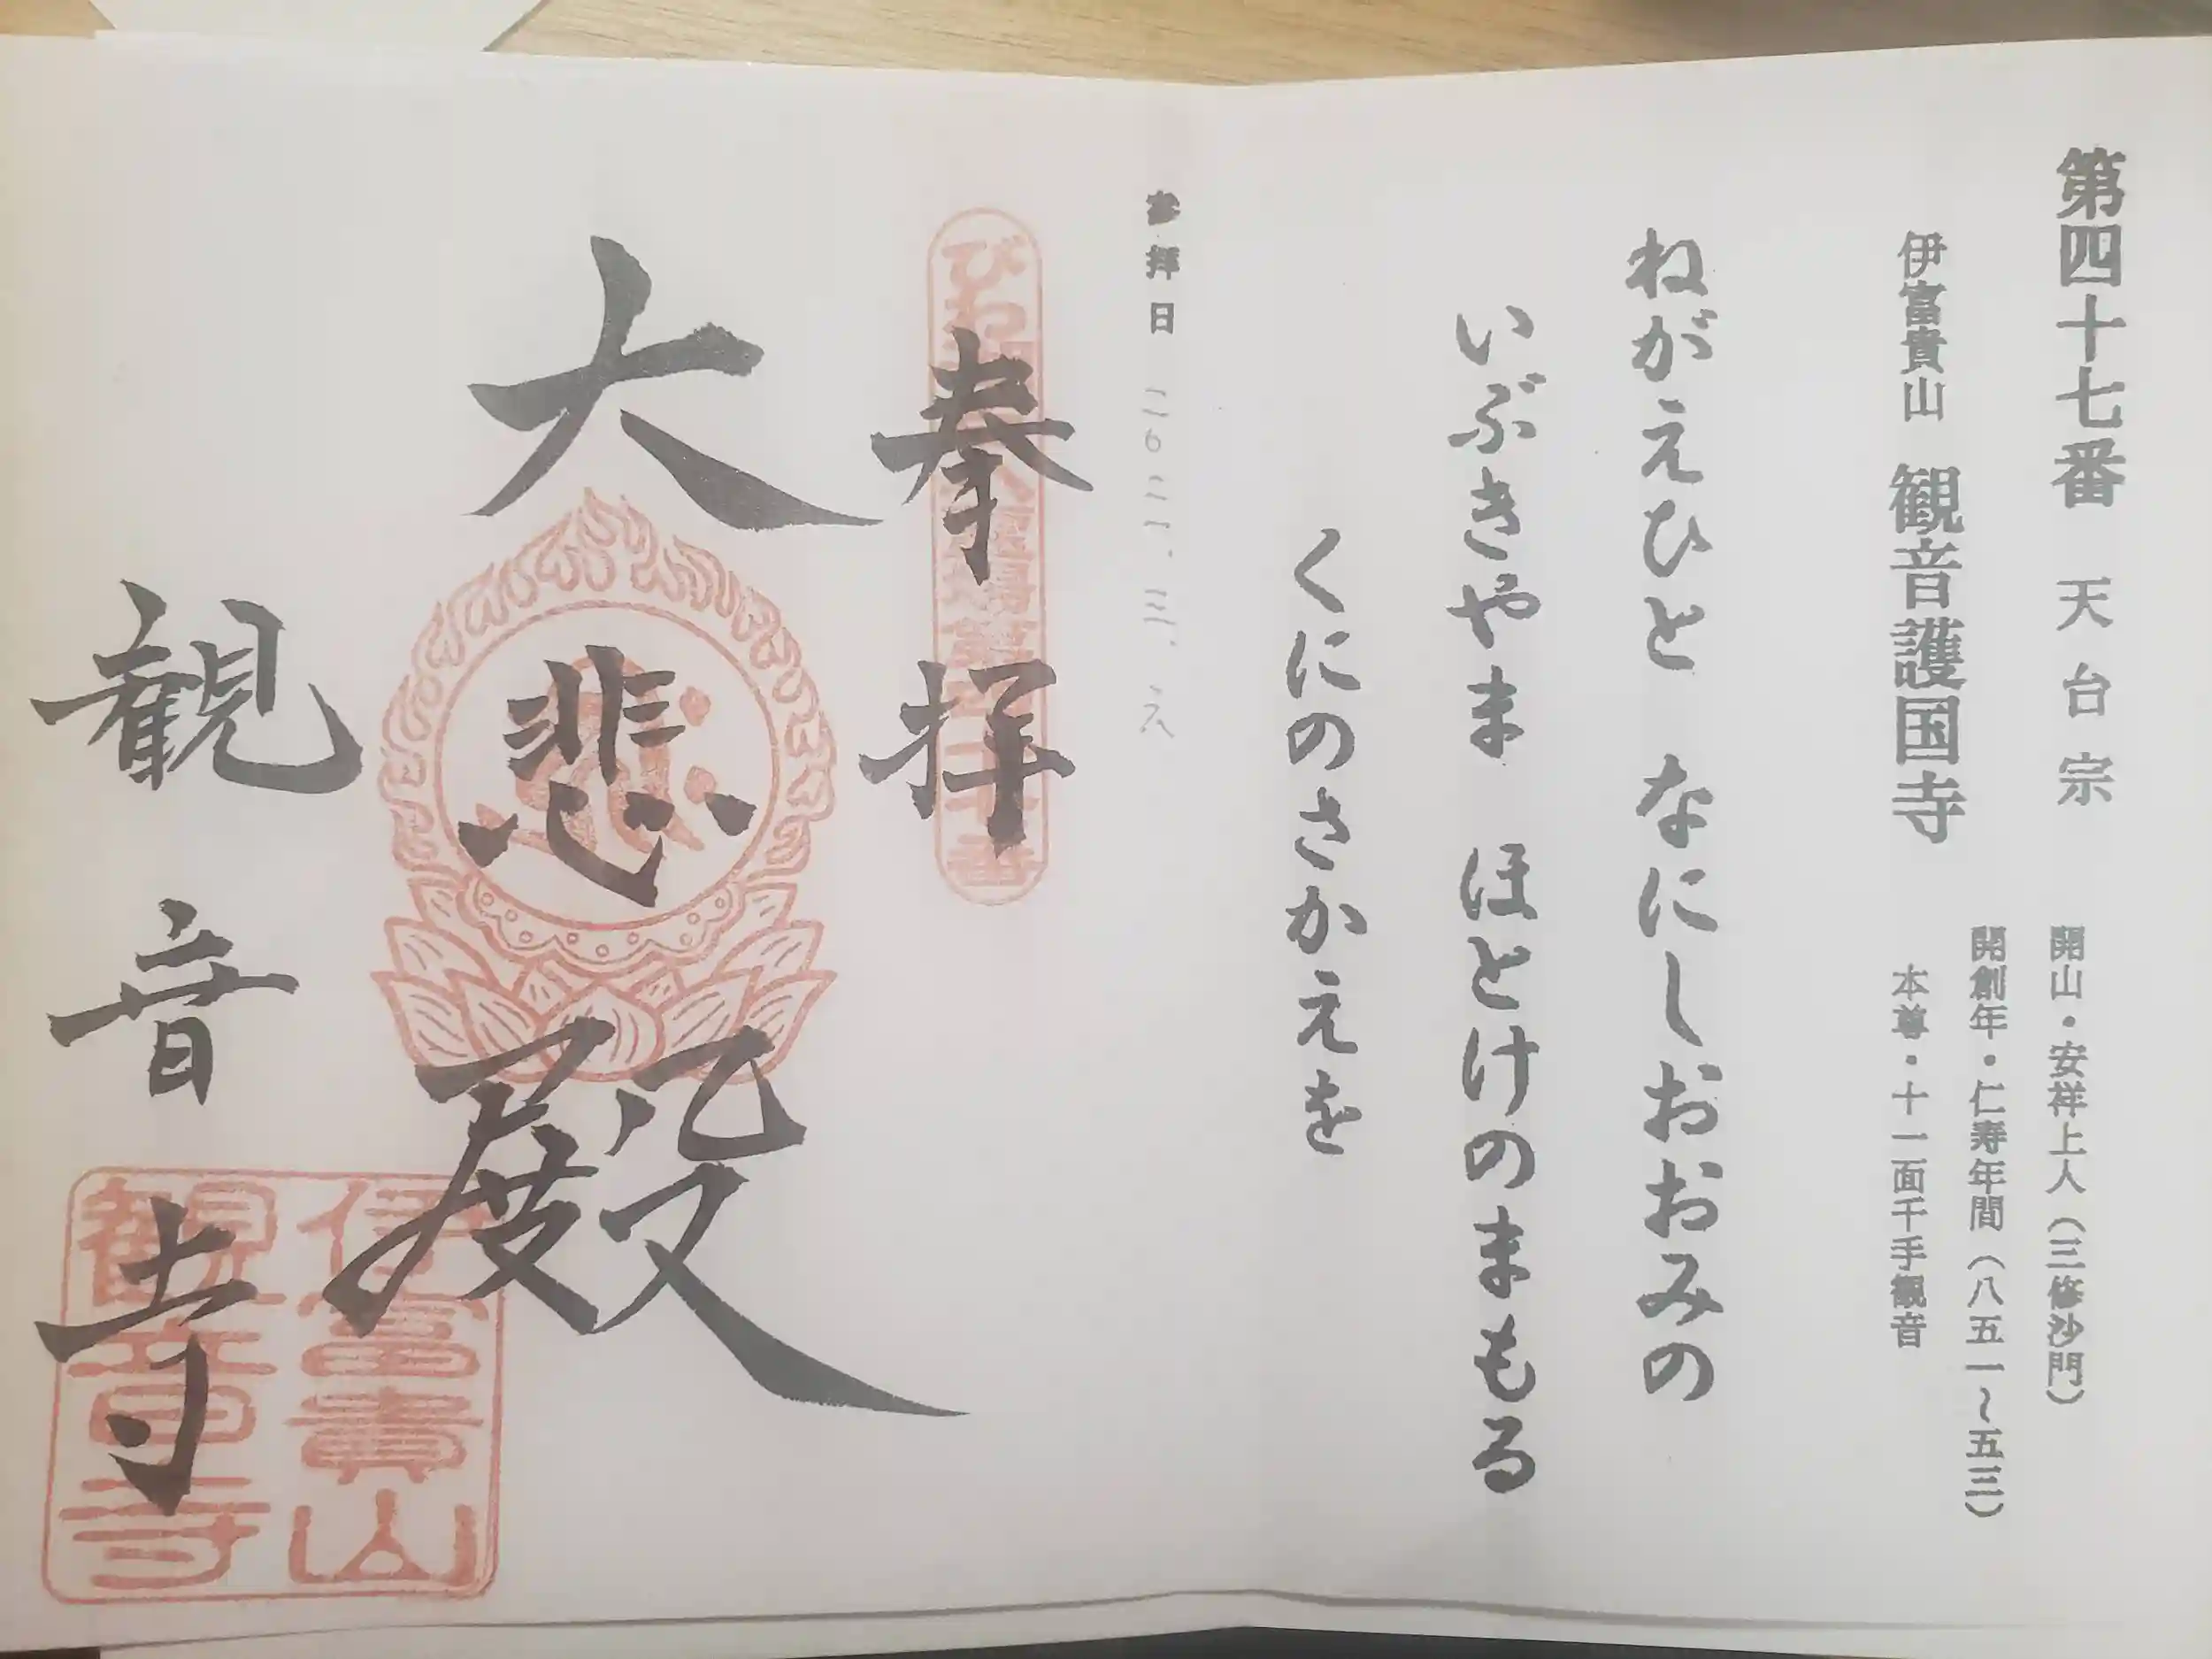 第四十七番 天台宗
開山・安祥上人（三修沙門）
開創年・仁寿年間（八五一～五三）
伊富貴山 観音護国寺
本尊・十一面千手観音
ねがえひと なにしおおみの
いぶきやま ほとけのまもる
くにのさかえを
参拝日
奉拝
大悲殿
観音寺
伊富貴山
観音寺